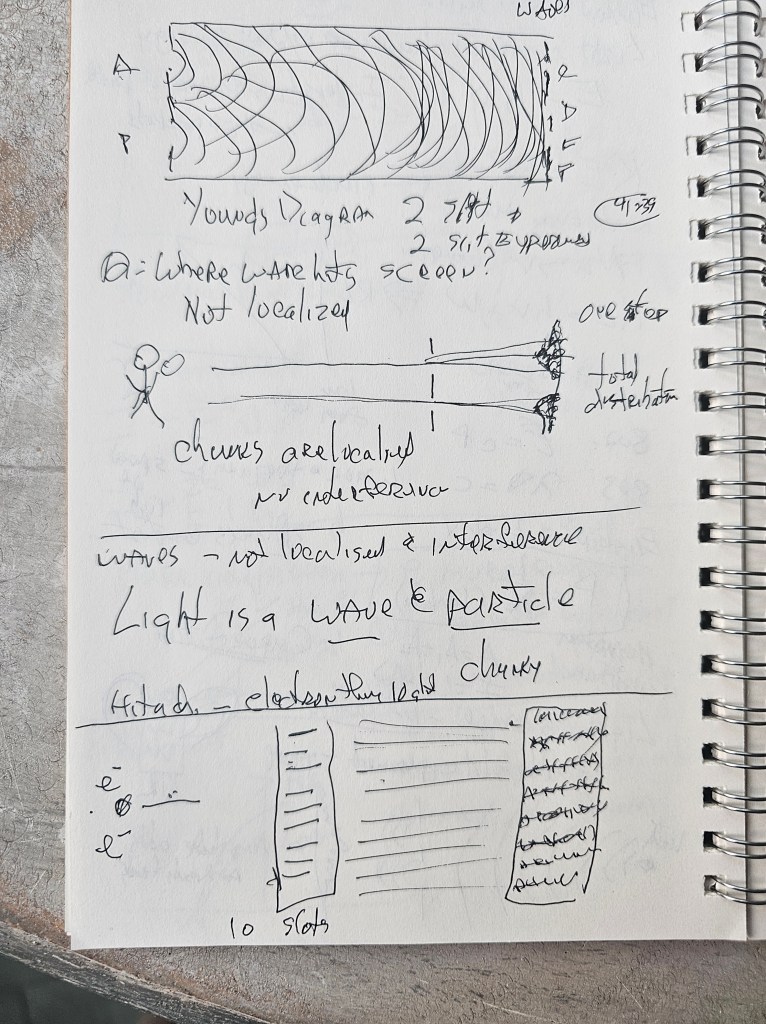 WAVES
A
C
D
E
F
Young's Diagram 2 slit
2 slit Exposures
Q = Where wave hits screen?
Not localized
one step
total
distribution
chunks are localized
no interference
WAVES - Not localised & INTERFERENCE
Light is a WAVE & PARTICLE
chunky
Hitachi - electron thru light
e-
e-
10 slots